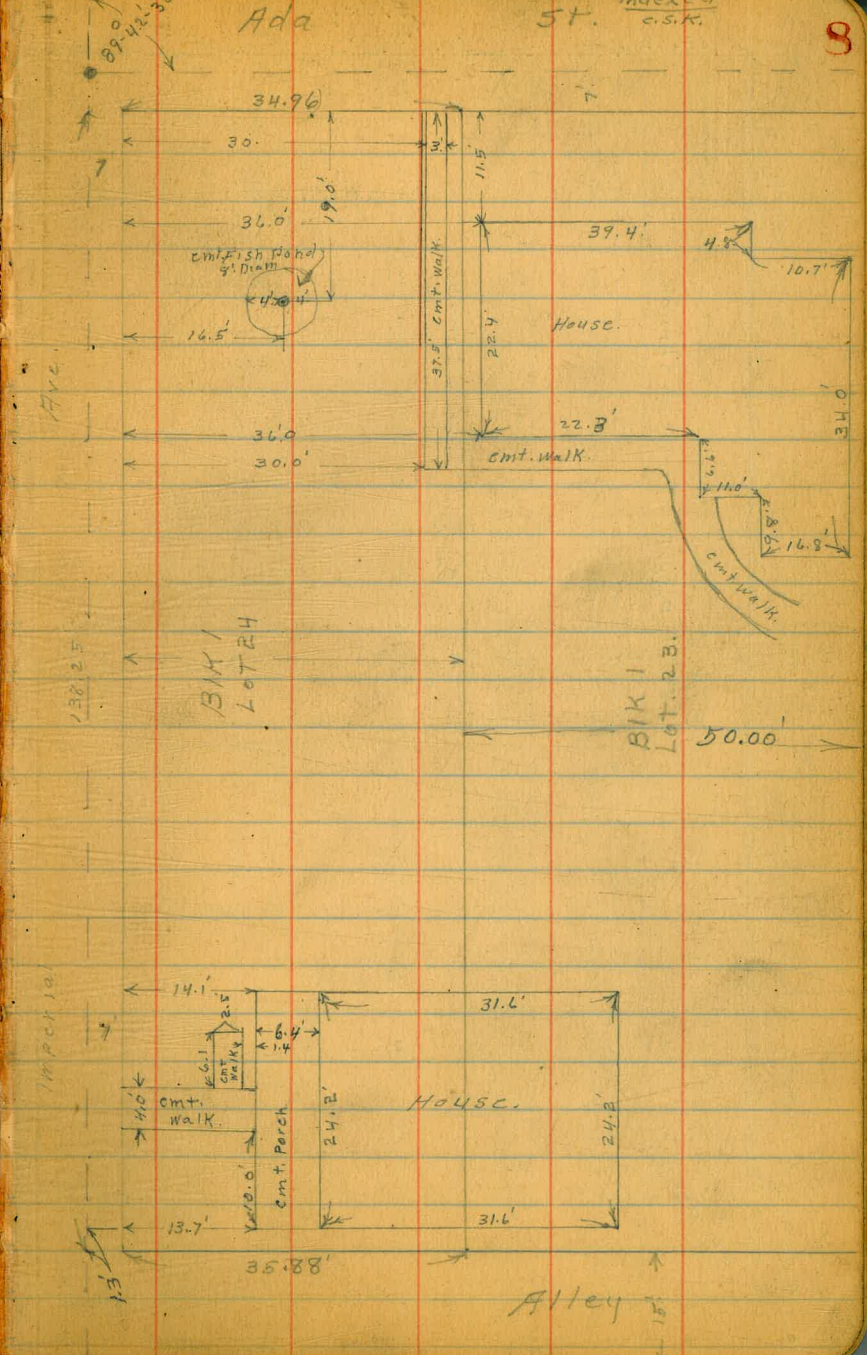 Ada St. Indexed
c.s.k.
8
34.96
7'
30.
3'
11.5'
7
19.0'
36.0'
39.4'
4.8
10.7'
cmt. Fish Pond
8' Diam
4' 4'
16.5'
37.5' cmt. walk.
22.4'
House.
34.0'
Ave.
36.0
22.3'
30.0'
cmt. walk.
6.6'
11.0'
9.8'
16.8'
cmt. walk.
138.25
Blk 1
LOT 24
Blk 1
Lot. 23.
50.00'
Imperial
14.1'
2.5'
31.6'
7
6.4'
1.4
6.1
cmt
walk
4.0'
cmt.
walk.
24.2'
House.
24.2'
cmt. Porch
10.0'
13.7'
31.6'
1.3'
35.88'
Alley
15'